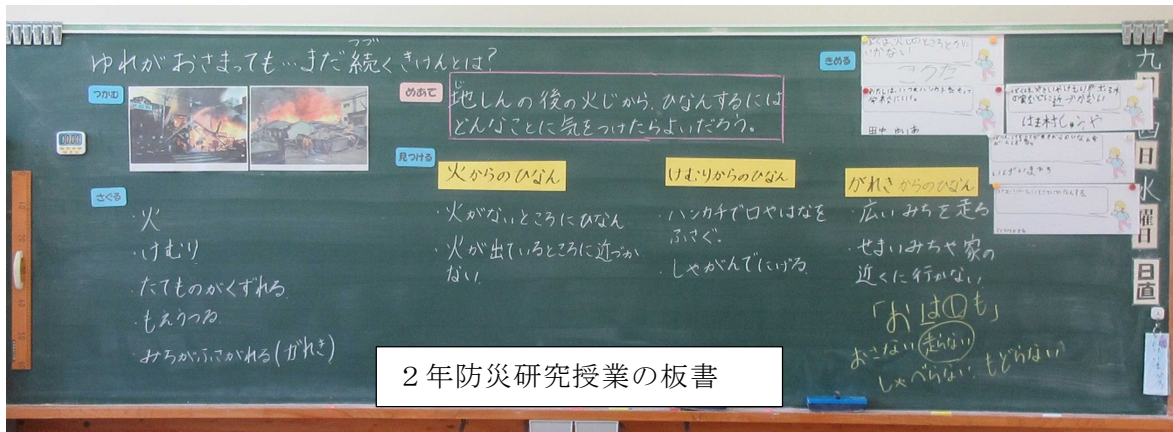 ゆれがおさまっても…まだ続くきけんとは？
つづ
つかむ
めあて
地しんの後の火じから、ひなんするには
じ
どんなことに気をつけたらよいだろう。
さぐる
・火
・けむり
・たてものがくずれる
・もえうつる
・みちがふさがれる(がれき)
見つける
火からのひなん
・火がないところにひなん
・火が出ているところに近づか
ない
けむりからのひなん
・ハンカチで口やはなを
ふさぐ。
・しゃがんでにげる
がれきからのひなん
・広いみちを走る
・せまいみちや家の
近くに行かない
「おはしも」
おさない 走らない
しゃべらない もどらない
きめる
いかない
こうた
田中
九
月
四
日
水
曜
日
日直
２年防災研究授業の板書